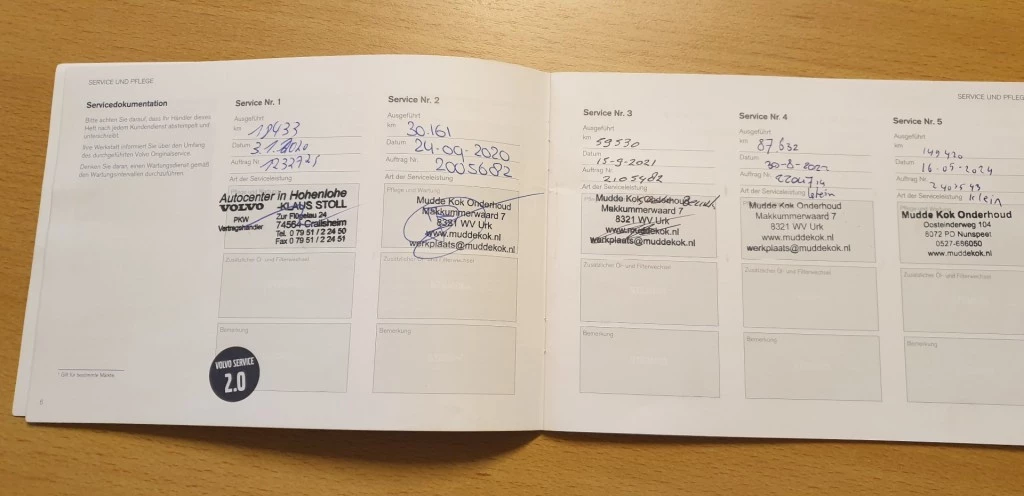 SERVICE UND PFLEGE
Servicedokumentation
Bitte achten Sie darauf, dass Ihr Händler dieses
Heft nach jedem Kundendienst abstempelt und
unterschreibt.
Ihre Werkstatt informiert Sie über den Umfang
des durchgeführten Volvo Originalservice.
Denken Sie daran, einen Wartungsdienst gemäß
den Wartungsintervallen durchzuführen.
1 Gilt für bestimmte Märkte.
6
Service Nr. 1
Ausgeführt
km 19433
Datum 3.1.2020
Auftrag Nr. 1232725
Art der Serviceleistung
Pflege und Wartung
Autocenter in Hohenlohe
VOLVO KLAUS STOLL
PKW Zur Flügelau 24
Vertragshändler 74564 Crailsheim
Tel. 0 79 51 / 2 24 50
Fax 0 79 51 / 2 24 51
Zusätzlicher Öl- und Filterwechsel
Bemerkung
VOLVO SERVICE
2.0
Service Nr. 2
Ausgeführt
km 30.161
Datum 24-09-2020
Auftrag Nr. 2005682
Art der Serviceleistung
Pflege und Wartung
Mudde Kok Onderhoud
Makkummerwaard 7
8321 WV Urk
www.muddekok.nl
werkplaats@muddekok.nl
Zusätzlicher Öl- und Filterwechsel
Bemerkung
SERVICE UND PFLEGE
Service Nr. 3
Ausgeführt
km 59530
Datum 15-9-2021
Auftrag Nr. 2105482
Art der Serviceleistung
Mudde Kok Onderhoud
Makkummerwaard 7
8321 WV Urk
www.muddekok.nl
werkplaats@muddekok.nl
Zusätzlicher Öl- und Filterwechsel
Bemerkung
Service Nr. 4
Ausgeführt
km 87.632
Datum 30-8-2022
Auftrag Nr. 2204714
Art der Serviceleistung klein
Mudde Kok Onderhoud
Makkummerwaard 7
8321 WV Urk
www.muddekok.nl
werkplaats@muddekok.nl
Zusätzlicher Öl- und Filterwechsel
Bemerkung
Service Nr. 5
Ausgeführt
km 149430
Datum 16-05-2024
Auftrag Nr. 2403543
Art der Serviceleistung klein
Mudde Kok Onderhoud
Oosteinderweg 104
8072 PD Nunspeet
0527-686050
www.muddekok.nl
Zusätzlicher Öl- und Filterwechsel
Bemerkung